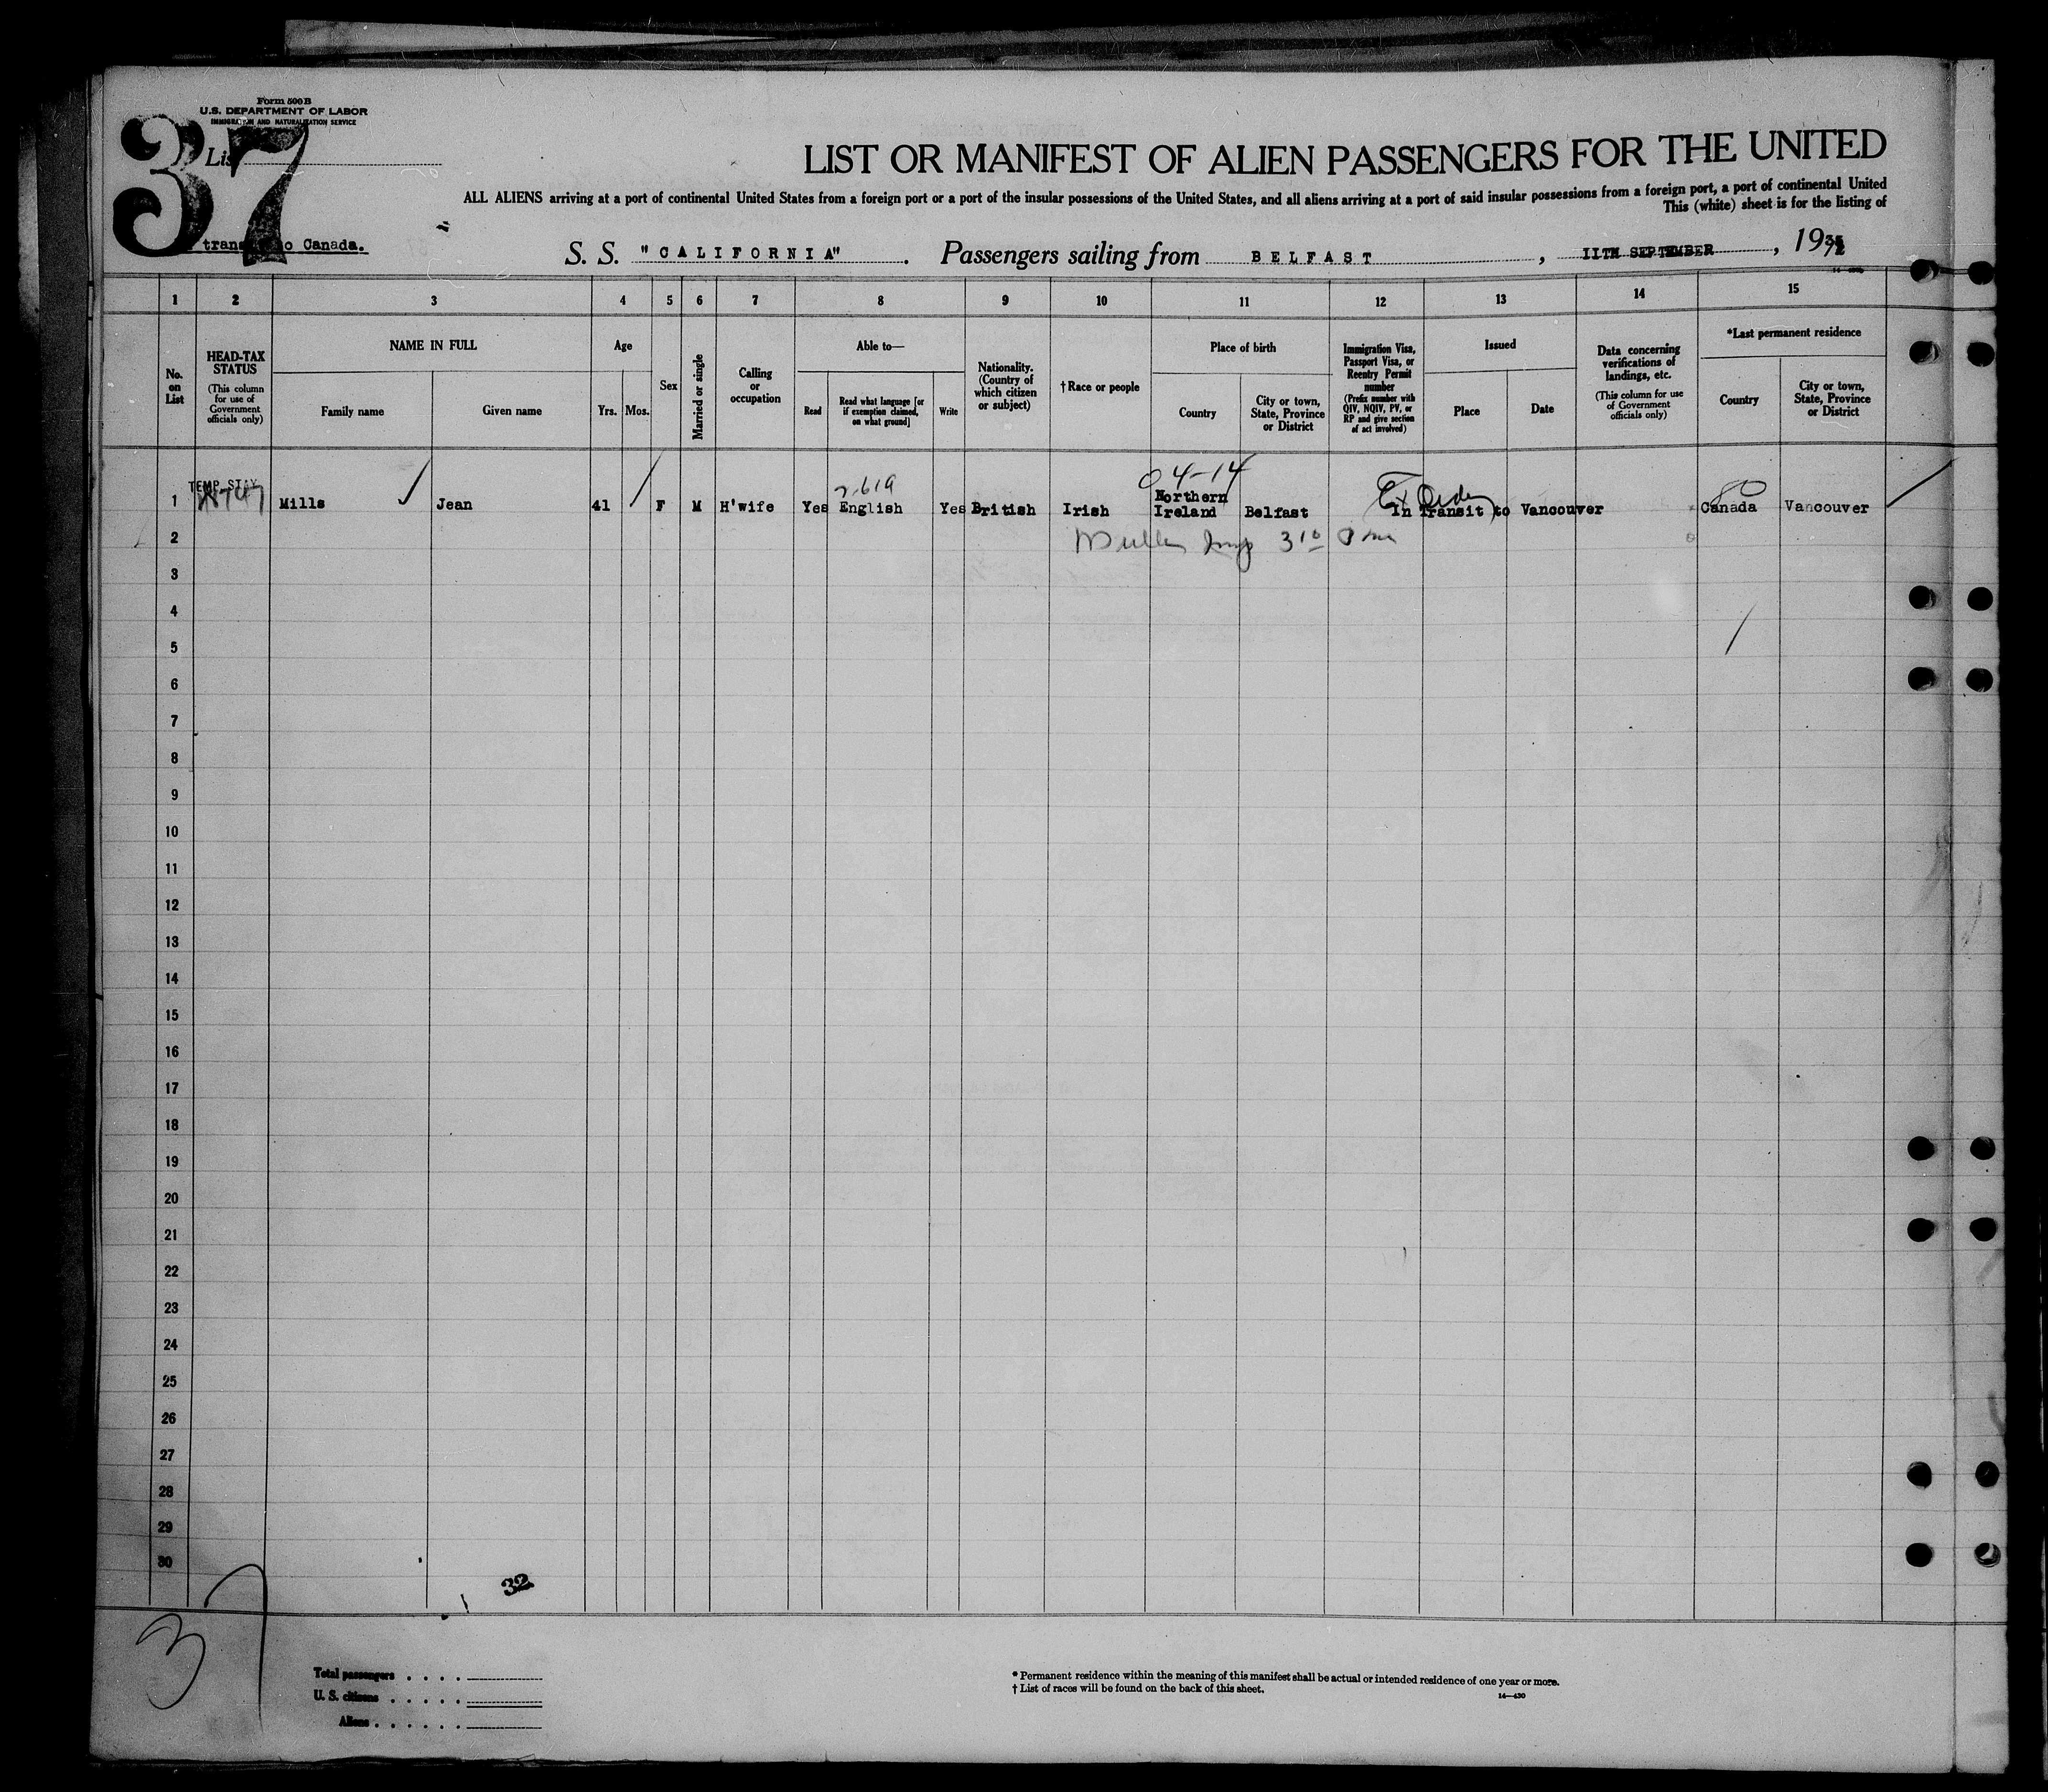 Form 500 B
U.S. DEPARTMENT OF LABOR
IMMIGRATION AND NATURALIZATION SERVICE
37
List
LIST OR MANIFEST OF ALIEN PASSENGERS FOR THE UNITED
ALL ALIENS arriving at a port of continental United States from a foreign port or a port of the insular possessions of the United States, and all aliens arriving at a port of said insular possessions from a foreign port, a port of continental United
This (white) sheet is for the listing of
Canada.
S. S. "CALIFORNIA". Passengers sailing from BELFAST, 11TH SEPTEMBER, 19
1 2 3 4 5 6 7 8 9 10 11 12 13 14 15
No. on List
HEAD-TAX STATUS
(This column for use of Government officials only)
NAME IN FULL
Family name
Given name
Age
Yrs.
Mos.
Sex
Married or single
Calling or occupation
Able to—
Read
Read what language [or if exemption claimed, on what ground]
Write
Nationality. (Country of which citizen or subject)
† Race or people
Place of birth
Country
City or town, State, Province or District
Immigration Visa, Passport Visa, or Reentry Permit number
(Prefix number with QIV, NQIV, PV, or RP and give section of act involved)
Issued
Place
Date
Data concerning verifications of landings, etc.
(This column for use of Government officials only)
*Last permanent residence
Country
City or town, State, Province or District
04-14
TEMP STAY
80
1 Mills Jean 41 F M H'wife Yes English Yes British Irish Northern Ireland Belfast In Transit to Vancouver Canada Vancouver
2
3
4
5
6
7
8
9
10
11
12
13
14
15
16
17
18
19
20
21
22
23
24
25
26
27
28
29
30
32
37
Total passengers . . . .
U. S. citizens . . . . .
Aliens . . . . . .
* Permanent residence within the meaning of this manifest shall be actual or intended residence of one year or more.
† List of races will be found on the back of this sheet.
14—430